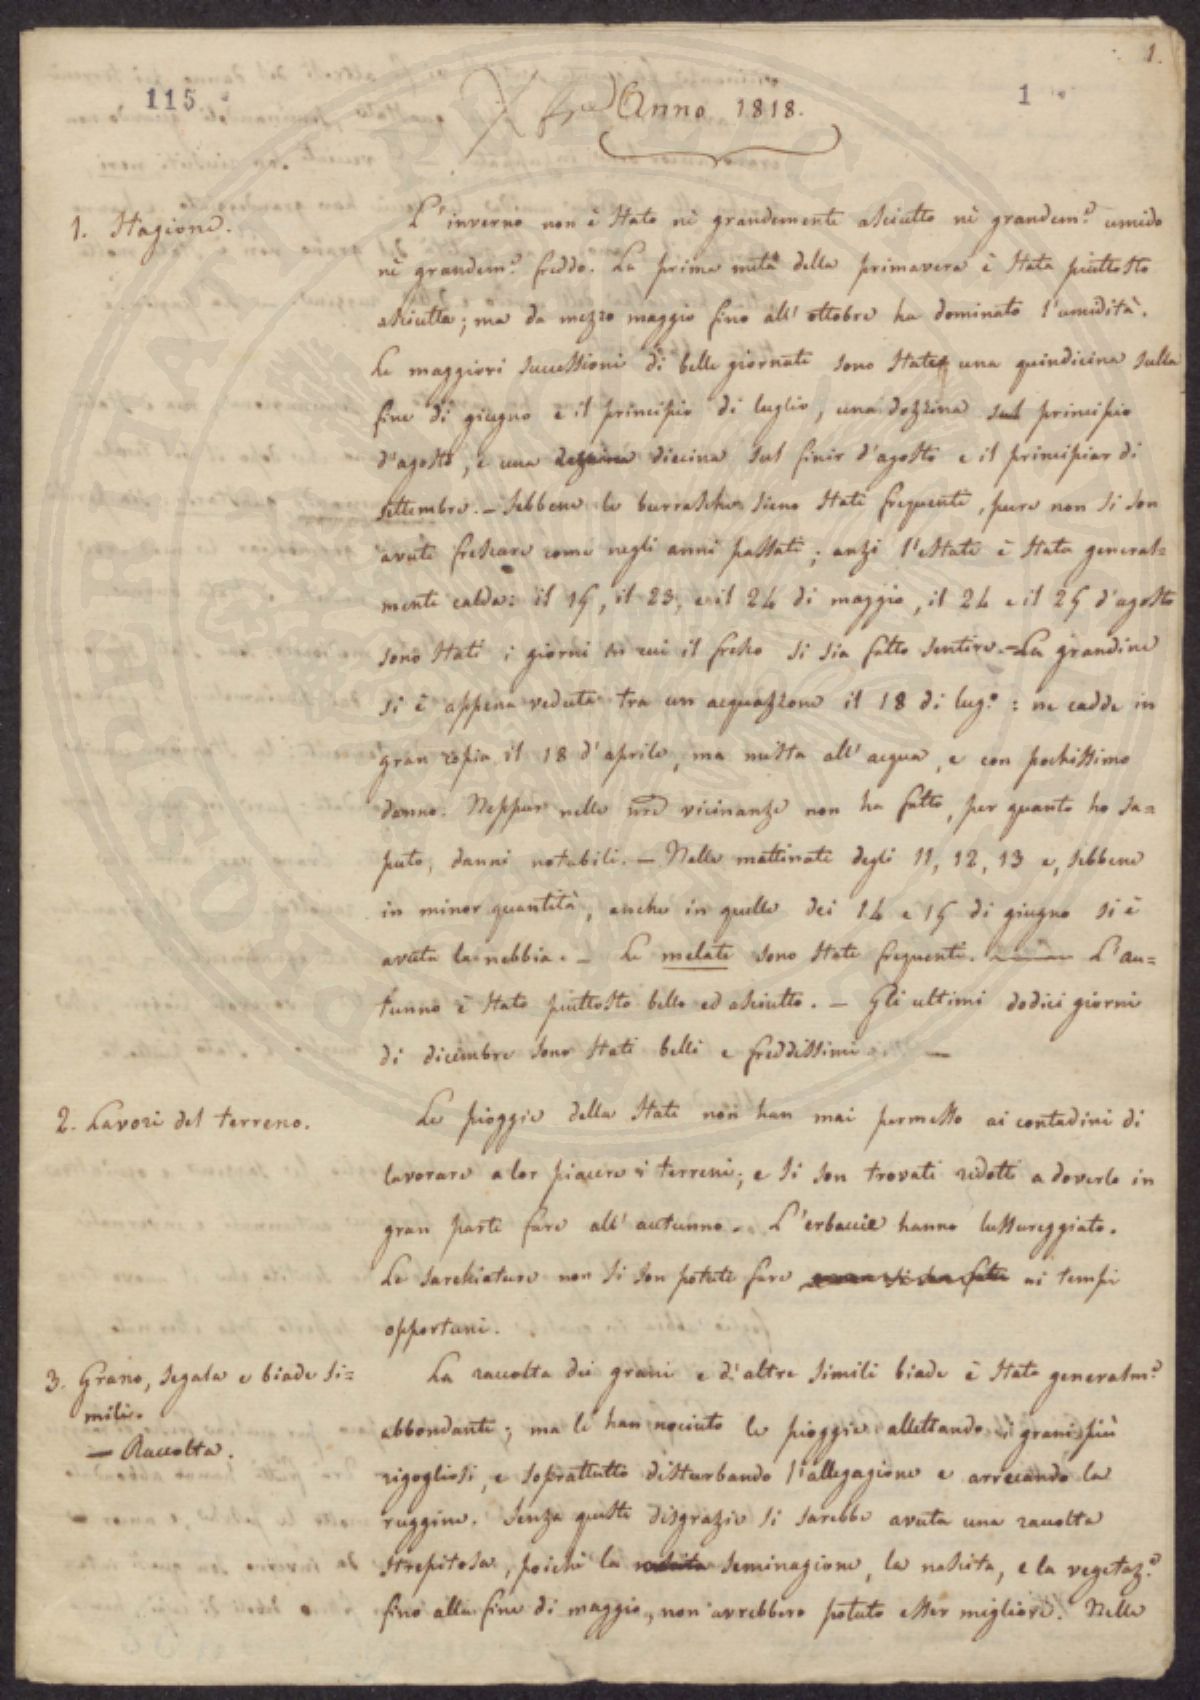 1.
115
1
Anno 1818.
1. Stagione.
L'inverno non è stato nè grandemente asciutto nè grandem.e umido
nè grandem.e freddo. La prima metà della primavera è stata piuttosto
asciutta; ma da mezzo maggio fino all'ottobre ha dominato l'umidità.
Le maggiori successioni di belle giornate sono state una quindicina sulla
fine di giugno e il principio di luglio, una dozzina sul principio
d'agosto, e una diecina sul finir d'agosto e il principiar di
settembre. – Sebbene le burrasche sieno state frequenti, pure non si son
avute frescare come negli anni passati; anzi l'estate è stata general=
mente calda: il 15, il 23, e il 24 di maggio, il 24 e il 25 d'agosto
sono stati i giorni in cui il fresco si sia fatto sentire. – La grandine
si è appena veduta tra un acquazzone il 18 di lug.o: ne cadde in
gran copia il 18 d'aprile, ma mista all'acqua, e con pochissimo
danno. Neppur nelle nre vicinanze non ha fatto, per quanto ho sa=
puto, danni notabili. – Nelle mattinate degli 11, 12, 13 e, sebbene
in minor quantità, anche in quelle dei 14 e 15 di giugno si è
avuta la nebbia. – Le melate sono state frequenti. L'au=
tunno è stato piuttosto bello ed asciutto. – Gli ultimi dodici giorni
di dicembre sono stati belli e freddissimi. —
2. Lavori del terreno.
Le pioggie della state non han mai permesso ai contadini di
lavorare a lor piacere i terreni; e si son trovati ridotti a doverlo in
gran parte fare all'autunno. L'erbaccie hanno lussureggiato.
Le sarchiature non si son potute fare ai tempi
opportuni.
3. Grano, segala e biade si=
mili.
— Raccolta.
La raccolta dei grani e d'altre simili biade è stata generalm.e
abbondante; ma le han nociuto le pioggie allettando i grani più
rigogliosi, e soprattutto disturbando l'allegagione e arrecando la
ruggine. Senza queste disgrazie si sarebbe avuta una raccolta
strepitosa, poichè la seminagione, la nascita, e la vegetaz.e
fino alla fine di maggio, non avrebbero potuto esser migliori. Nelle